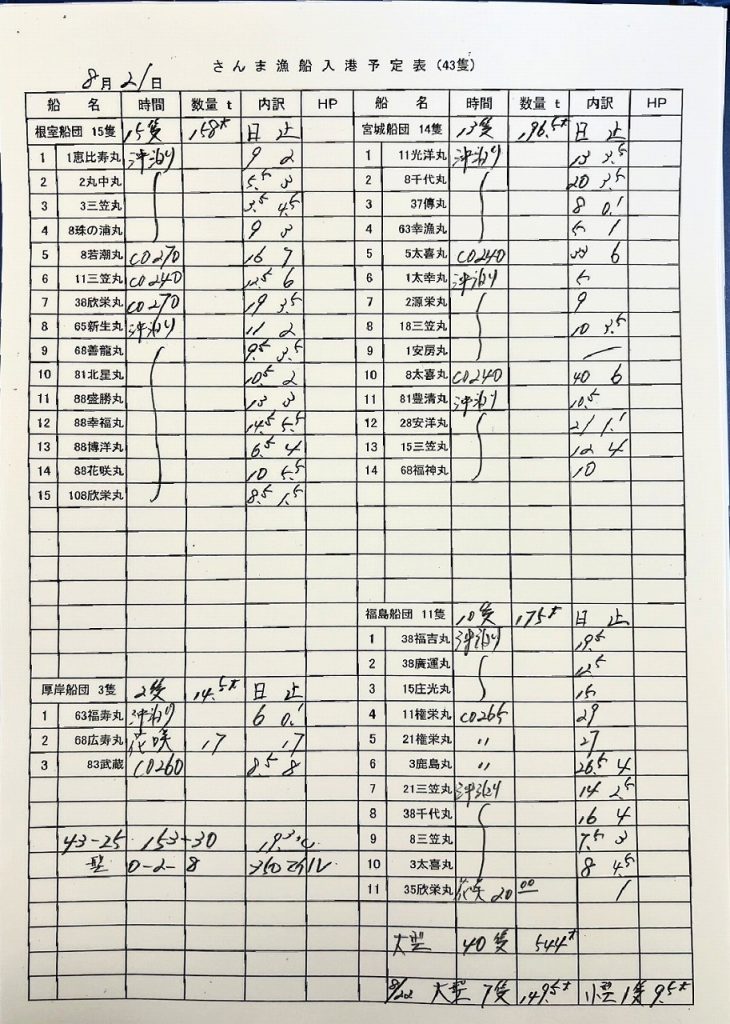 さんま漁船入港予定表(43隻)
8月21日
船 名 時間 数量 t 内訳 HP
根室船団 15隻 15隻 158t 日 止
1 1恵比寿丸 沖泊り 9 2
2 2丸中丸 5.5 3
3 3三笠丸 3.5 4.5
4 8珠の浦丸 9 3
5 8若潮丸 CO270 16 7
6 11三笠丸 CO240 12.5 6
7 38欣栄丸 CO270 19 3.5
8 65新生丸 沖泊り 11 2
9 68善龍丸 9.5 3.5
10 81北星丸 10.5 2
11 88盛勝丸 13 3
12 88幸福丸 14.5 5.5
13 88博洋丸 6.5 4
14 88花咲丸 10 5.5
15 108欣栄丸 8.5 1.5
厚岸船団 3隻 2隻 14.5t 日 止
1 63福寿丸 沖泊り 6 0.1
2 68広寿丸 花咲 17 17
3 83武蔵 CO260 8.5 8
43-25 153-30 19.3℃
型 0-2-8 350マイル
船 名 時間 数量 t 内訳 HP
宮城船団 14隻 13隻 196.5t 日 止
1 11光洋丸 沖泊り 13 3.5
2 8千代丸 20 3.5
3 37傳丸 8 0.1
4 63幸漁丸 5 1
5 5太喜丸 CO240 33 6
6 1太幸丸 沖泊り 5
7 2源栄丸 9
8 18三笠丸 10 3.5
9 1安房丸 —
10 8太喜丸 CO240 40 6
11 81豊清丸 沖泊り 10.5
12 28安洋丸 21 1.1
13 15三笠丸 12 4
14 68福神丸 10
福島船団 11隻 10隻 175t 日 止
1 38福吉丸 沖泊り 19.5
2 38廣運丸 12.5
3 15庄光丸 15
4 11権栄丸 CO265 29
5 21権栄丸 〃 27
6 3鹿島丸 〃 26.5 4
7 21三笠丸 沖泊り 14 2.5
8 38千代丸 16 4
9 8三笠丸 7.5 3
10 3太喜丸 8 4.5
11 35欣栄丸 花咲 20 00 1
大型 40隻 544t
8/22 大型 7隻 149.5t 小型 1隻 9.5t